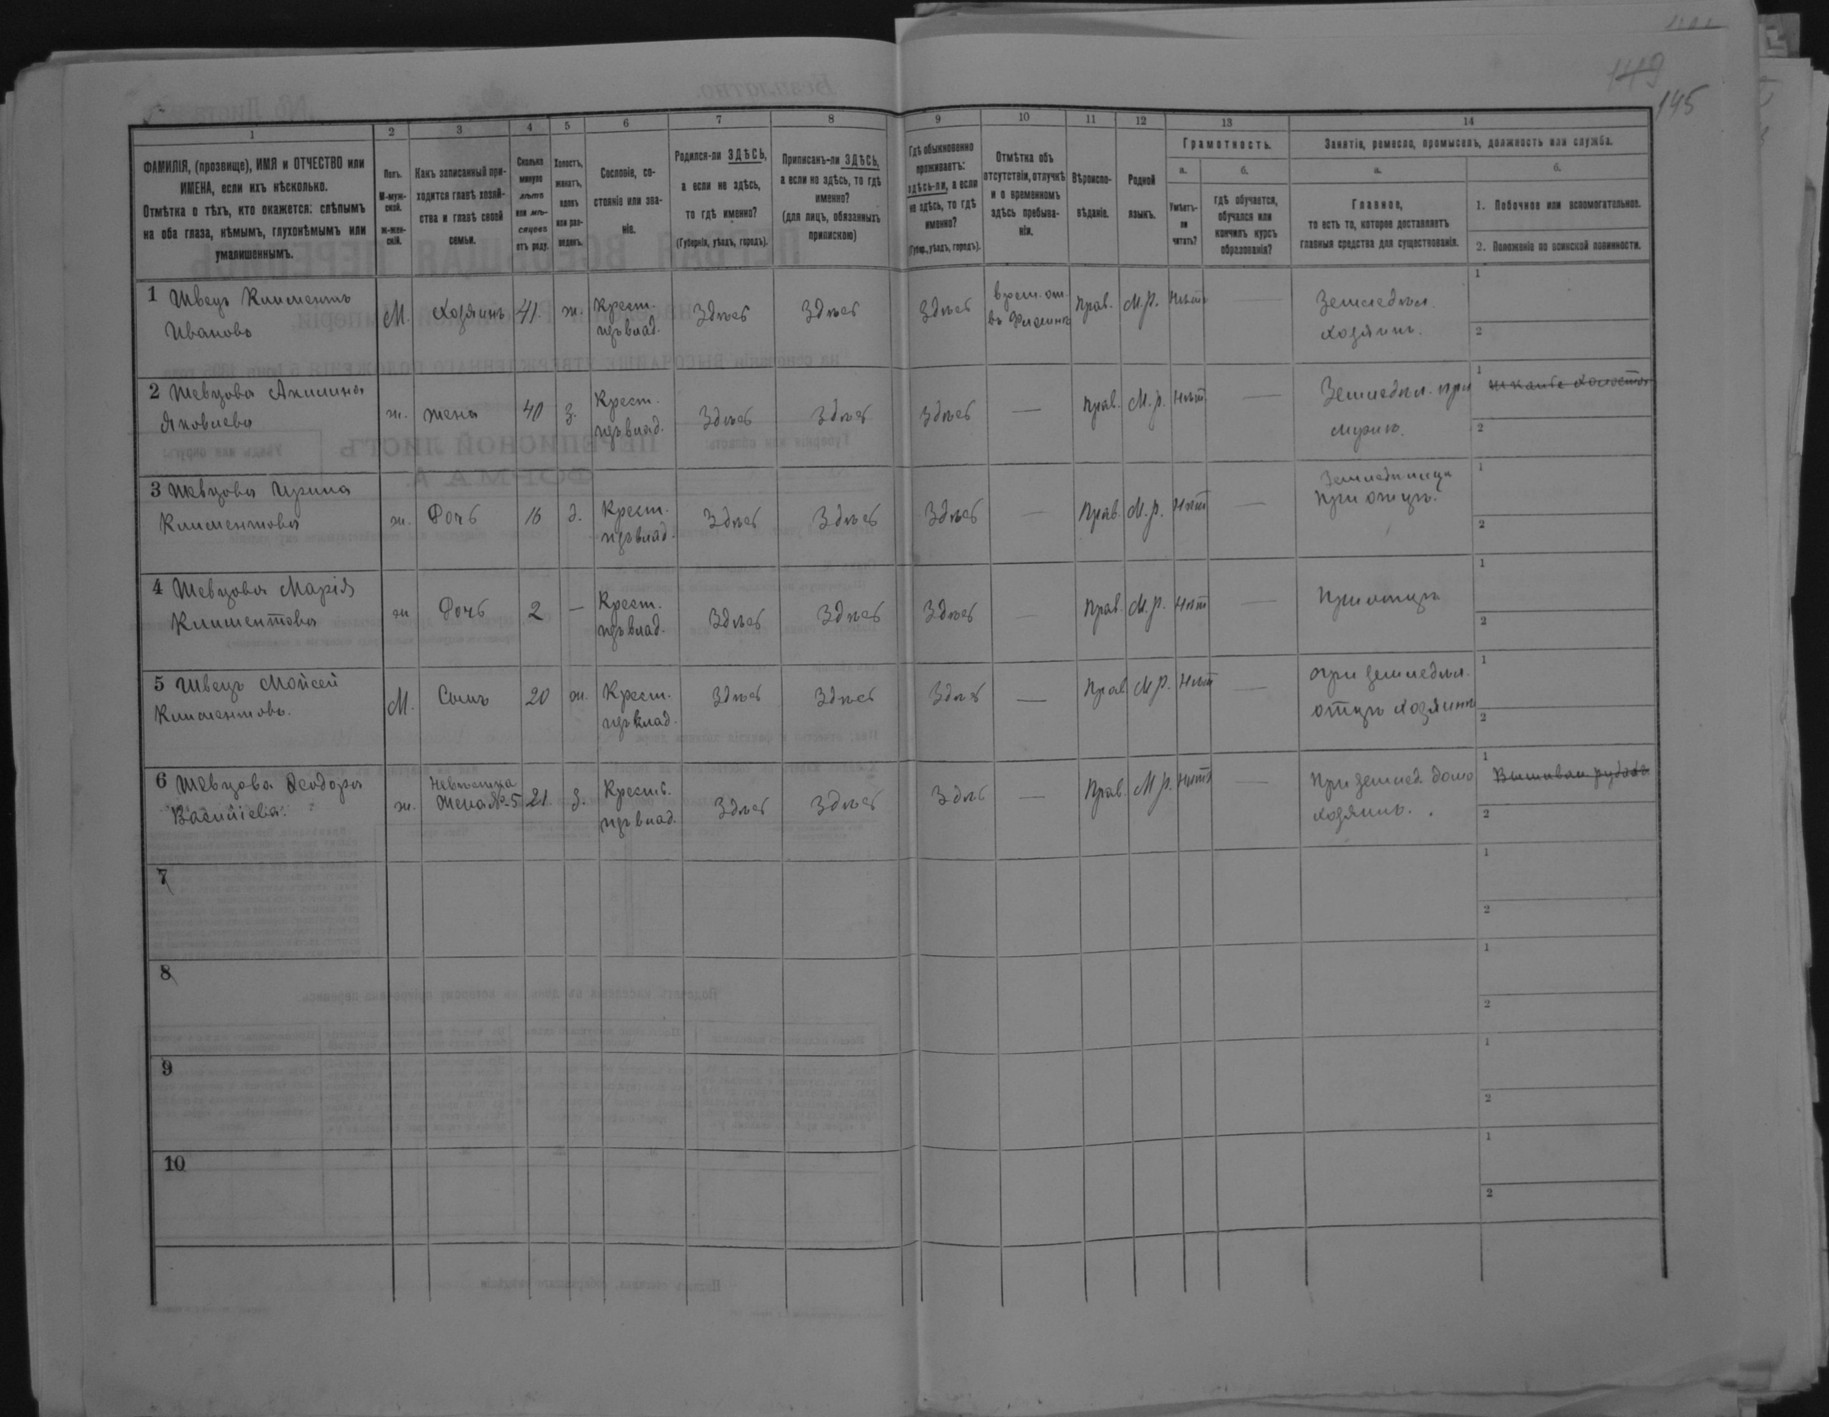 149
145
1
2
3
4
5
6
7
8
9
10
11
12
13
14
ФАМИЛІЯ, (прозвище), ИМЯ и ОТЧЕСТВО или
ИМЕНА, если ихъ нѣсколько.
Отмѣтка о тѣхъ, кто окажется: слѣпымъ
на оба глаза, нѣмымъ, глухонѣмымъ или
умалишеннымъ.
Полъ.
М-муж-
ской.
ж-жен-
скій.
Какъ записанный при-
ходится главѣ хозяй-
ства и главѣ своей
семьи.
Сколько
минуло
лѣтъ
или мѣ-
сяцевъ
отъ роду.
Холостъ,
женатъ,
вдовъ
или раз-
веденъ.
Сословіе, со-
стояніе или зва-
ніе.
Родился-ли ЗДѢСЬ,
а если не здѣсь,
то гдѣ именно?
(Губернія, уѣздъ, городъ).
Приписанъ-ли ЗДѢСЬ,
а если не здѣсь, то гдѣ
именно?
(для лицъ, обязанныхъ
припискою)
Гдѣ обыкновенно
проживаетъ:
здѣсь-ли, а если
не здѣсь, то гдѣ
именно?
(Губер., уѣздъ, городъ).
Отмѣтка объ
отсутствіи, отлучкѣ
и о временномъ
здѣсь пребыва-
ніи.
Вѣроиспо-
вѣданіе.
Родной
языкъ.
Грамотность.
а.
Умѣетъ-
ли
читать?
б.
гдѣ обучается,
обучался или
кончилъ курсъ
образованія?
Занятія, ремесло, промыселъ, должность или служба.
а.
Главное,
то есть то, которое доставляетъ
главныя средства для существованія.
б.
1. Побочное или вспомогательное.
2. Положеніе по воинской повинности.
1 Швецъ Климентъ
Ивановъ
М.
Хозяинъ
41
ж.
Крест.
изъ влад.
Здѣсь
Здѣсь
Здѣсь
врем. от.
въ
Прав.
М.р.
Нѣтъ
Земледѣл.
хозяинъ.
1
2
2 Шевцова Акилина
Яковлева
ж.
жена
40
з.
Крест.
изъ влад.
Здѣсь
Здѣсь
Здѣсь
—
Прав.
М.р.
Нѣтъ
—
Земледѣл. при
мужѣ.
1
2
3 Шевцова Ирина
Климентова
ж.
Дочь
16
д.
Крест.
изъ влад.
Здѣсь
Здѣсь
Здѣсь
—
Прав.
М.р.
Нѣтъ
—
при отцѣ.
1
2
4 Шевцова Марія
Климентова
ж
Дочь
2
—
Крест.
изъ влад.
Здѣсь
Здѣсь
Здѣсь
—
Прав.
М.р.
Нѣтъ
—
При отцѣ
1
2
5 Швецъ Мойсей
Климентовъ.
М.
Сынъ
20
ж.
Крест.
изъ влад.
Здѣсь
Здѣсь
Здѣсь
—
Прав
М.р.
Нѣтъ
—
при земледѣл.
отцѣ хозяинѣ
1
2
6 Шевцова Ѳеодора
Василіева.
ж.
Невѣстка
жена № 5
21
з.
Крест.
изъ влад.
Здѣсь
Здѣсь
Здѣсь
—
Прав.
М.р.
Нѣтъ
—
При земл. домо
хозяинѣ.
1
2
7
1
2
8
1
2
9
1
2
10
1
2